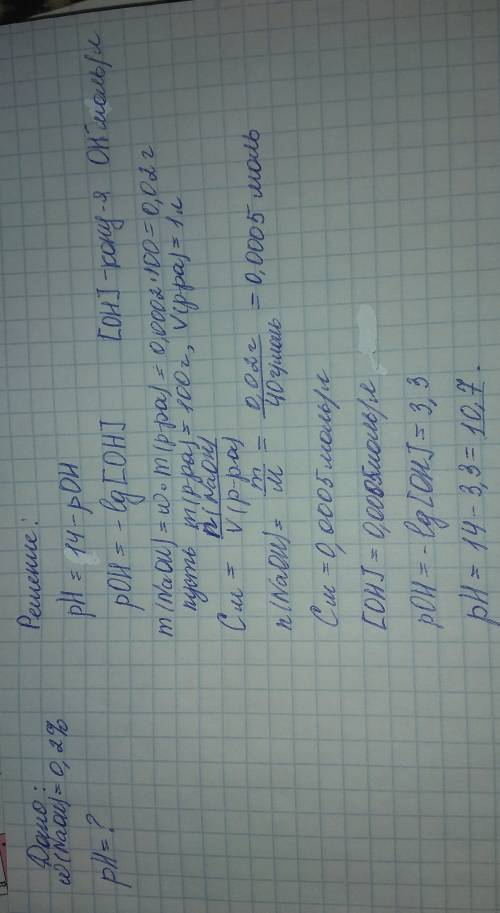 Дано:
w(NaOH) = 0,2%
pH = ?
Решение:
pH = 14 - pOH
pOH = -lg[OH] [OH] - конц-я OH⁻ моль/л
m(NaOH) = w · m(р-ра) = 0,0002 · 100 = 0,02 г
пусть m(р-ра) = 100 г, V(р-ра) = 1 л
См = n(NaOH) / V(р-ра)
n(NaOH) = m/M = 0,02 г / 40 г/моль = 0,0005 моль
См = 0,0005 моль/л
[OH] = 0,0005 моль/л
pOH = -lg[OH] = 3,3
pH = 14 - 3,3 = 10,7.